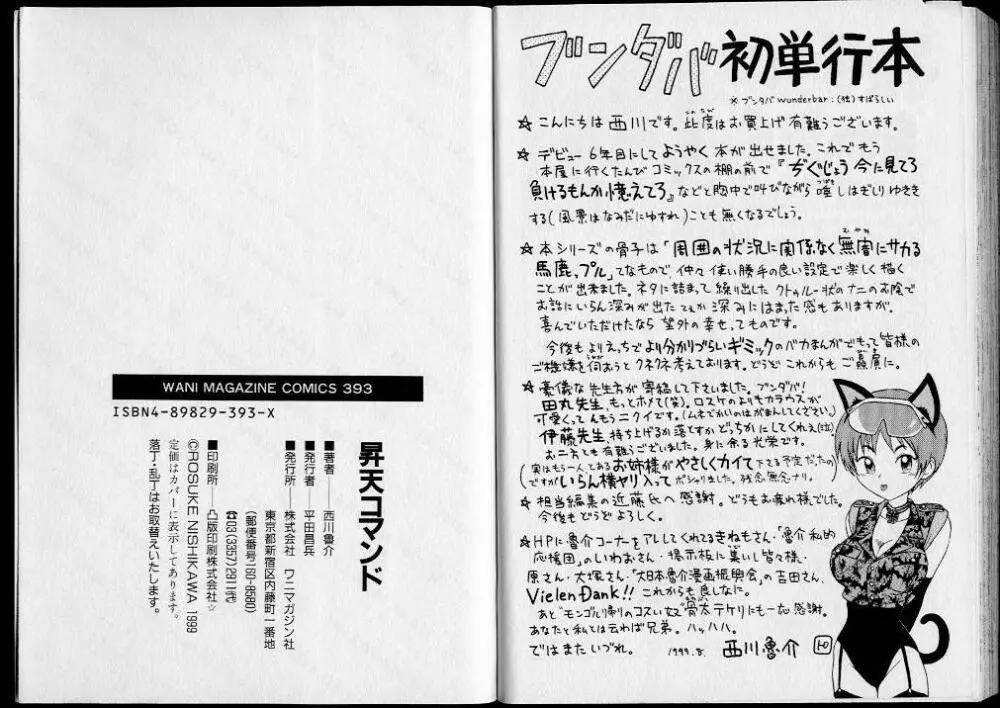 ブンダバ 初単行本
※ ブンダバ wunderbar:(独)すばらしい
☆こんにちは 西川です。此度はお買上げ有難うございます。
☆ デビュー 6年目にして ようやく 本が出せました。これでもう
本屋に行くたんび コミックスの棚の前で『ぢぐじょう 今に見てろ
負けるもんか 憶えてろ』などと胸中で叫びながら 唾しはぎしり ゆききする
(風景はなみだにゆすれ)ことも 無くなるでしょう。
☆本シリーズの骨子は「周囲の状況に関係なく無闇にサカる
馬鹿ップル」てなもので、仲々 使い勝手の良い設定で楽しく描く
ことが出来ました。ネタに詰まって 繰り出した クトゥルー状のナニのお陰で
お話にいらん深みが出た てぇか 深みにはまった感もありますが、
喜んでいただけたなら 望外の幸せ、てものです。
今後も よりえっちで より分かりづらいギミックのバカまんがでもって 皆様の
ご機嫌を伺おうと クネクネ考えております。どうぞ これからも ご贔屓に。
☆豪儀な先生方が寄稿して下さいました。ブンダバ!
田丸先生、もっとホメて(笑)。ロスケのよりもカラウスが
可愛くって んもう ニクイです。(ムネでかいのはがまんしてください。)
伊藤先生、持ち上げるか落とすか どっちかにしてくれぇ(泣)
お二方とも有難うございました。身に余る光栄です。
(実はもう一人、とあるお姉様がやさしくカイて下さる予定だったの
ですが いらん横ヤリ入って ポシャりました。残念無念ナリ。
☆ 担当編集の近藤氏へ感謝。どうもお疲れ様でした。
今後もどうぞよろしく。
☆HPに魯介コーナーをアレしてくれてるきねもさん・「魯介私的
応援団」のしいわおさん・掲示板に集いし皆々様・
原さん・大塚さん・「大日本魯介漫画振興会」の吉田さん、
Vielen Dank!! これからも良しなに。
あと モンゴル帰りのコスい奴 骨太テケリにも一応感謝。
あなたと私とは云わば兄弟。ハッハハ。
ではまたいづれ。 1999.8. 西川魯介
WANI MAGAZINE COMICS 393
ISBN4-89829-393-X
昇天コマンド
■著者───西川魯介
■発行者──平田昌兵
■発行所──株式会社 ワニマガジン社
東京都新宿区内藤町一番地
(郵便番号160-8580)
☎03(3357)2911㈹
■印刷所──凸版印刷株式会社☆
©ROSUKE NISHIKAWA 1999
定価はカバーに表示してあります。
落丁・乱丁はお取替えいたします。